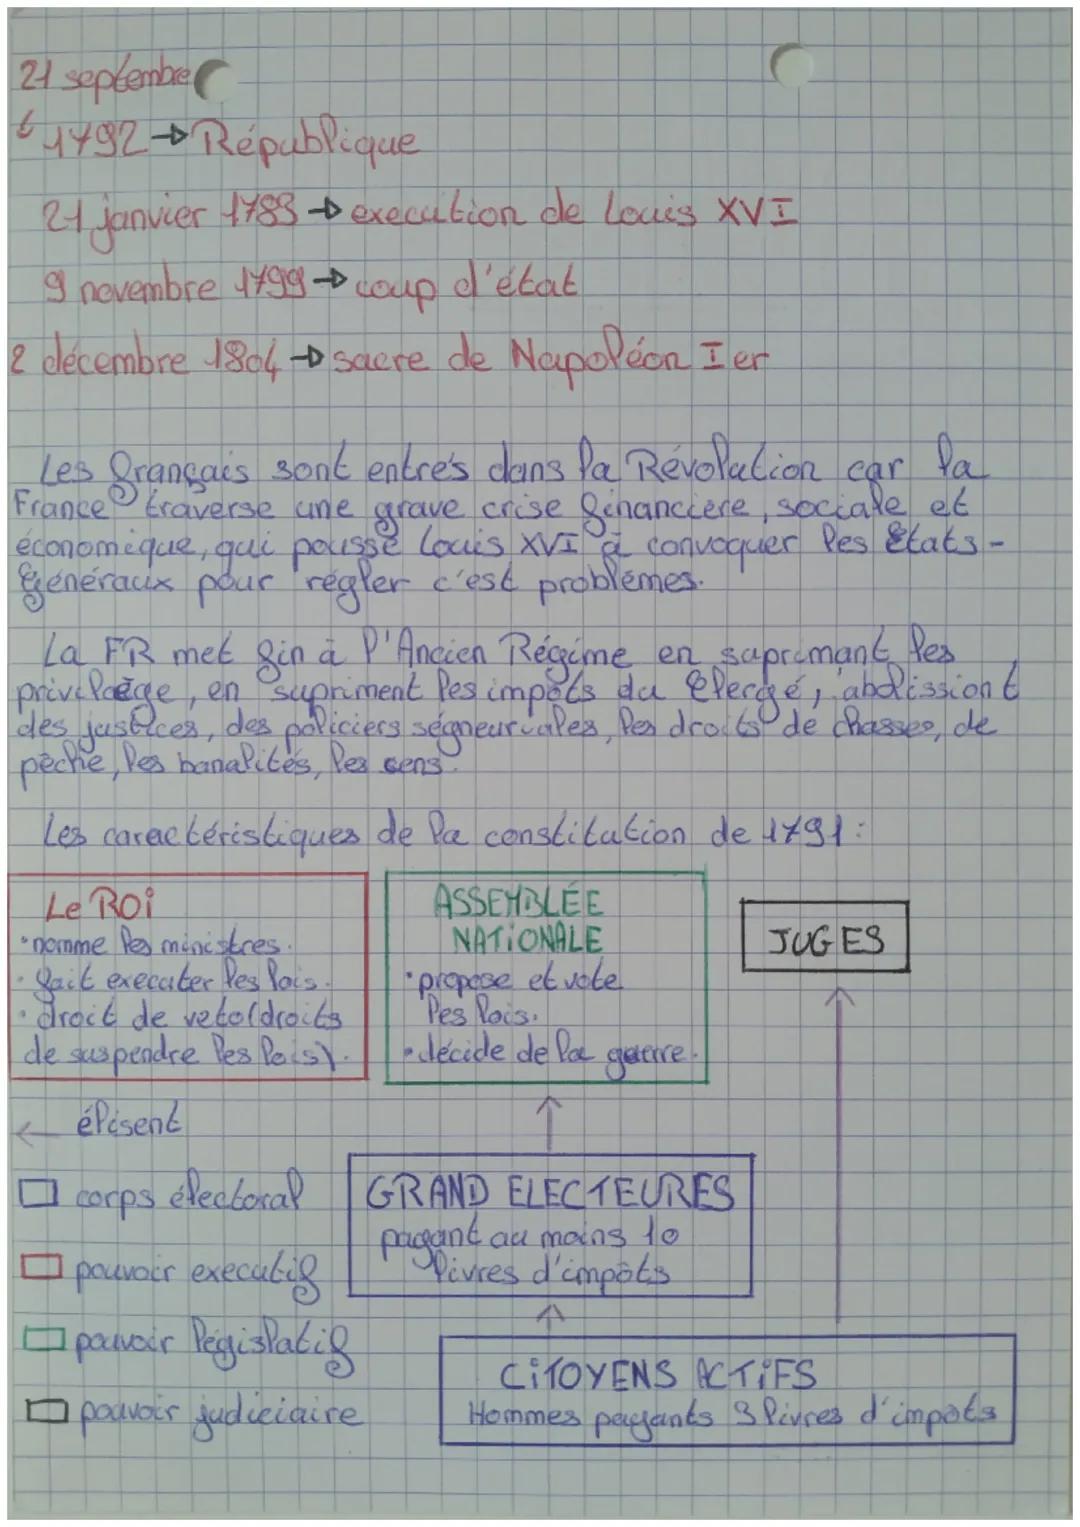 21 septembre
1792 → République
21 janvier 1783 → execution de Louis XVI
9 novembre 1799 → coup d'état
2 décembre 1804 → sacre de Napoléon Ier
Les français sont entrés dans la Révolution car la
France traverse une grave crise financière, sociale et
économique, qui pousse Louis XVI à convoquer les États-
généraux pour régler c'est problèmes.
La FR met fin à l'Ancien Régime en suprimant les
privilaège, en supriment les impôts du Clergé, abolission t
des justices, des policiers ségneuriales, les droits de chasses, de
pêche, les banalités, les cens.
Les caractéristiques de la constitution de 1791 :
Le ROi
• nomme les ministres.
• fait executer les lois.
• droit de veto (droits
de suspendre les lois).
ASSEMBLÉE
NATiONALE
• propose et vote
les lois.
• décide de la guerre.
JUGES
← élisent
corps électoral
pouvoir executif
pouvoir législatif
pouvoir judiciaire
GRAND ELECTEURES
pagant au moins 10
livres d'impôts
CiTOYENS ACTiFS
Hommes payants 3 livres d'impots